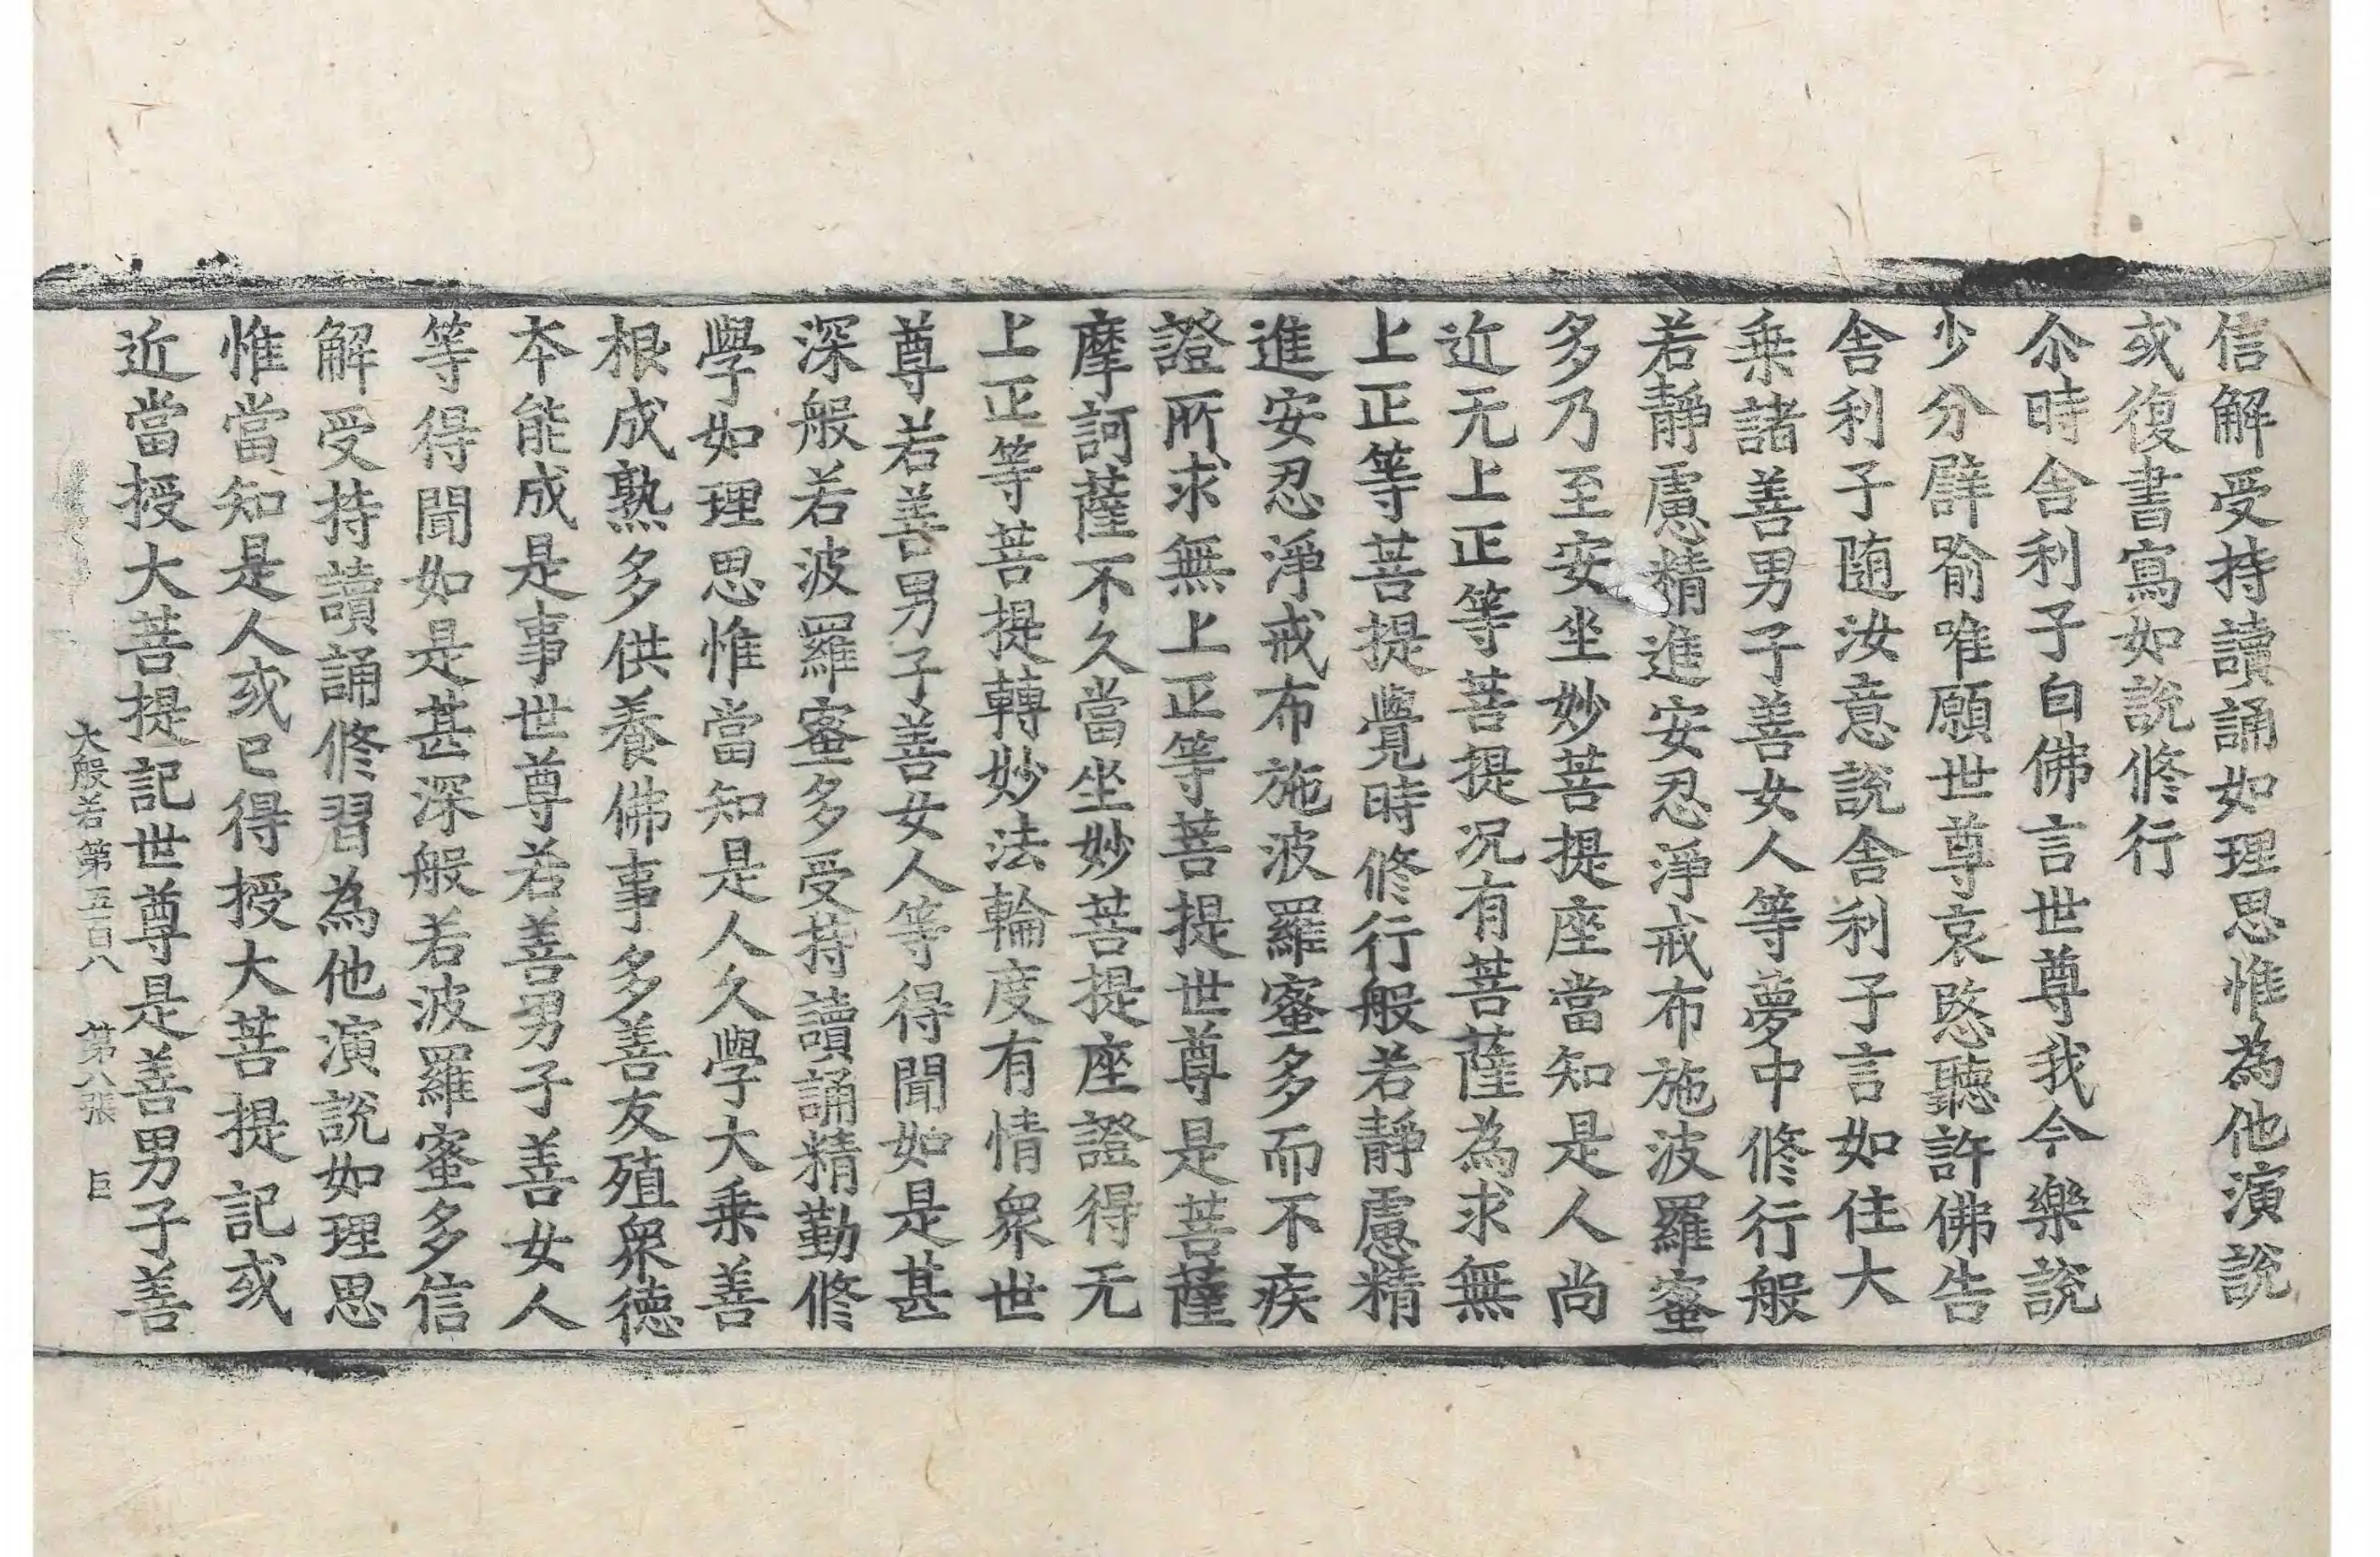 信解受持讀誦如理思惟為他演說
或復書寫如說修行
尒時舍利子白佛言世尊我今樂說
少分譬喻唯願世尊哀愍聽許佛告
舍利子随汝意說舍利子言如住大
乗諸善男子善女人等夢中修行般
若靜慮精進安忍淨戒布施波羅蜜
多乃至安坐妙菩提座當知是人尚
近无上正等菩提况有菩薩為求無
上正等菩提覺時修行般若靜慮精
進安忍淨戒布施波羅蜜多而不疾
證所求無上正等菩提世尊是菩薩
摩訶薩不久當坐妙菩提座證得无
上正等菩提轉妙法輪度有情衆世
尊若善男子善女人等得聞如是甚
深般若波羅蜜多受持讀誦精勤修
學如理思惟當知是人久學大乗善
根成熟多供養佛事多善友殖衆德
本能成是事世尊若善男子善女人
等得聞如是甚深般若波羅蜜多信
解受持讀誦修習為他演說如理思
惟當知是人或已得授大菩提記或
近當授大菩提記世尊是善男子善
大般若第五百八 第八張 巨